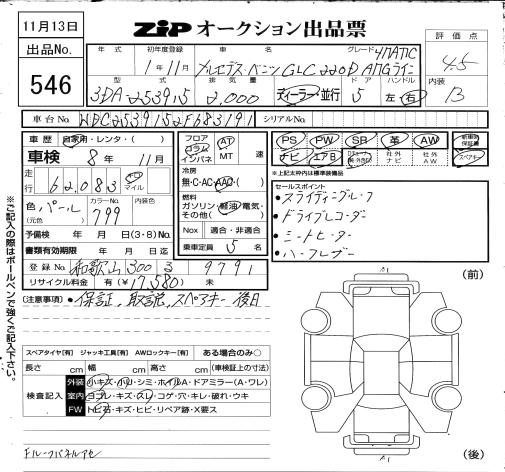 11月13日
ZIP オークション出品票
出品No.
546
年式 初年度登録 車名 グレード 4MATIC
1年11月 メルセデス・ベンツ GLC220D AMGライン
評価点
4.5
型式 排気量 ドア ハンドル
3DA-253915 2,000 ディーラー・並行 5 左・右
内装
B
車台No. WDC2539152F683191 シリアルNo.
車歴 自家用・レンタ・( )
車検 8年 11月
走行 62,083 キロ マイル
色 パール
(元色) 799
内装色
予備検 年 月 日(3・8)No.
書類有効期限 年 月 日迄
登録No. 和歌山 300 る 9791
リサイクル料金 有(¥17,580) 無
フロア コラム インパネ
AT MT 速
冷房
無・C・AC・AAC・( )
燃料
ガソリン・軽油・電気・その他( )
Nox 適合・非適合
乗車定員 5 名
PS PW SB 革 AW 新車時保証書
ナビ エアB 社外ナビ 社外AW スペアキー
※上記太枠内は標準装備品
セールスポイント
・スライディングルーフ
・ドライブレコーダー
・シートヒーター
(注意事項) ・保証、取説、スペアキー後日
スペアタイヤ[有] ジャッキ工具[有] AWロックキー[有] ある場合のみ○
長さ cm 幅 cm 高さ cm (車検証上の寸法)
検査記入
外装 小キズ・小凹・シミ・ホイルA・ドアミラー(A・ワレ)
室内 ヨゴレ・キズ・スレ・コゲ・穴・キレ・破れ・ウキ
FW トビ石・キズ・ヒビ・リペア跡・X要ス
※ご記入の際はボールペンで強くご記入下さい。
(前)
A1
A1
(後)